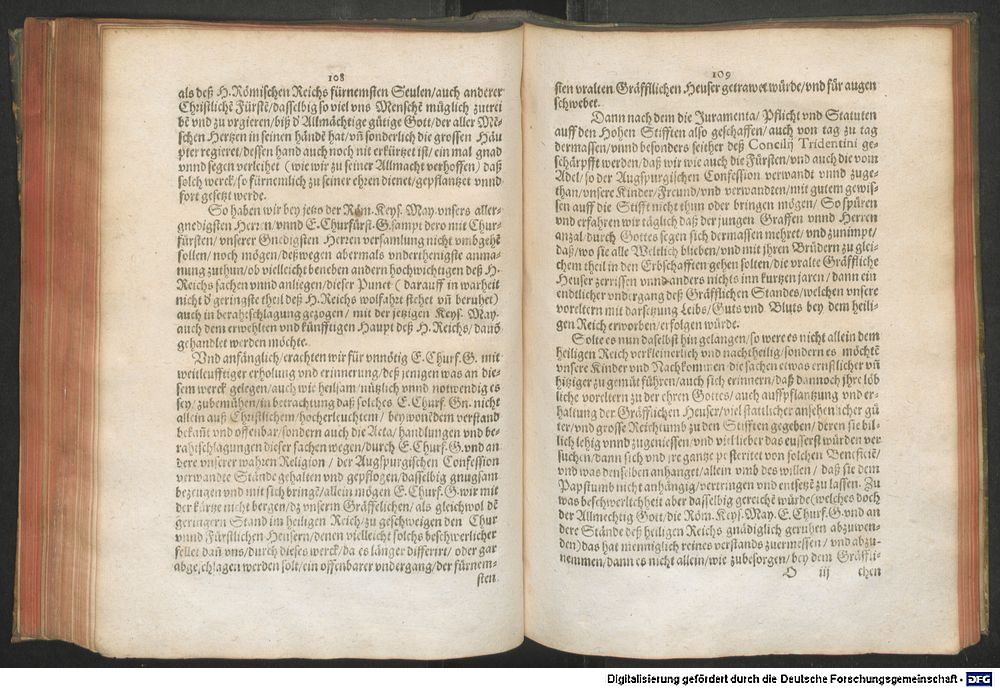 108
als deß H. Römischen Reichs fürnemsten Seulen/auch anderer
Christlichē Fürstē/dasselbig so viel vns Menschē müglich zutrei
bē vnd zu vrgieren/biß d' Allmächtige gütige Gott/der aller Mē-
schen Hertzen in seinen händē hat/vn̄ sonderlich die grossen Häu
pter regieret/dessen hand auch noch nit erkürtzet ist/ein mal gnad
vnnd segen verleihet (wie wir zu seiner Allmacht verhoffen) daß
solch werck/so fürnemlich zu seiner ehren dienet/gepflantzet vnnd
fort gesetzt werde.
So haben wir bey jetzo der Röm. Keys. May. vnsers aller-
gnedigsten Herren/vnnd E. Churfürst. G. sampt dero mit Chur-
fürsten/vnserer Gnedigsten Herren versamlung nicht vmbgehē
sollen/noch mögen/deßwegen abermals vnderthenigste anma-
nung zuthun/ob vielleicht beneben andern hochwichtigen deß H.
Reichs sachen vnnd anliegen/dieser Punct (darauff in warheit
nicht d' geringste theil deß H. Reichs wolfahrt stehet vn̄ beruhet)
auch in berahtschlagung gezogen/mit der jetzigen Keys. May.
auch dem erwehlten vnd künfftigen Haupt deß H. Reichs/dauō
gehandlet werden möchte.
Vnd anfänglich/erachten wir für vnnötig E. Churf. G. mit
weitleufftiger erholung vnd erinnerung/deß jenigen was an die-
sem werck gelegen/auch wie heilsam/nützlich vnnd notwendig es
sey/zubemühen/in betrachtung daß solches E. Churf. Gn. nicht
allein auß Christlichem/hocherleuchtem/beywonēdem verstand
bekañt vnd offenbar/sondern auch die Acta/handlungen vnd be-
rahtschlagungen dieser sachen wegen/durch E. Churf. G. vnd an
dere vnserer wahren Religion/der Augspurgischen Confession
verwandte Stände gehalten vnd gepflogen/dasselbig gnugsam
bezeugen vnd mit sich bringē/allein mögen E. Churf. G. wir mit
der kürtze nicht bergen/dz vnserm Gräffelichen/als gleichwol dē
geringern Stand im heiligen Reich/zu geschweigen den Chur
vnnd Fürstlichen Heusern/denen vielleicht solchs beschwerlicher
fellet dañ vns/durch dieses werck/da es länger differirt/oder gar
abgeschlagen werden solt/ein offenbarer vndergang/der fürnem-
sten
109
sten vralten Gräfflichen Heuser getrawet würde/vnd für augen
schwebet.
Dann nach dem die Juramenta/Pflicht vnd Statuten
auff den Hohen Stifften also geschaffen/auch von tag zu tag
dermassen/vnnd besonders seither deß Concilij Tridentini ge-
schärpfft werden/daß wir wie auch die Fürsten/vnd auch die vom
Adel/so der Augspurgischen Confession verwandt vnnd zuge-
than/vnsere Kinder/Freund/vnd verwandten/mit gutem gewis-
sen auff die Stifft nicht thun oder bringen mögen/So spüren
vnd erfahren wir täglich daß der jungen Graffen vnnd Herren
anzal/durch Gottes segen sich dermassen mehret/vnd zunimpt/
daß/wo sie alle Weltlich blieben/vnd mit jhren Brüdern zu glei-
chem theil in den Erbschafften gehen solten/die vralte Gräffliche
Heuser zerrissen vnnd anders nichts inn kurtzen jaren/dann ein
endtlicher vndergang deß Gräfflichen Standes/welchen vnsere
voreltern mit darsetzung Leibs/Guts vnd Bluts bey dem heili-
gen Reich erworben/erfolgen würde.
Solte es nun daselbst hin gelangen/so were es nicht allein dem
heiligen Reich verkleinerlich vnd nachtheilig/sondern es möchtē
vnsere Kinder vnd Nachkommen die sachen etwas ernstlicher vn̄
hitziger zu gemüt führen/auch sich erinnern/daß dannoch jhre löb
liche voreltern zu der ehren Gottes/auch auffpflantzung vnd er-
haltung der Gräflichen Heuser/viel stattlicher ansehenlicher gü
ter/vnd grosse Reichtumb zu den Stifften gegeben/deren sie bil-
lich lehig vnnd zugeniessen/vnd viel lieber das eusserst würden ver
suchen/dann sich vnd jre gantze posteritet von solchen Beneficiē/
vnd was denselben anhanget/allein vmb des willen/daß sie dem
Papstumb nicht anhängig/vertringen vnd entsetzē zu lassen. Zu
was beschwerlichheit aber dasselbig gereichē würde (welches doch
der Allmechtig Gott/die Röm. Keys. May. E. Churf. G. vnd an
dere Stände deß heiligen Reichs gnädiglich geruhen abzuwen-
den) das hat menniglich reines verstands zuermessen/vnd abzu-
nemmen/dann es nicht allein/wie zubesorgen/bey dem Gräffli-
O iij chen
Digitalisierung gefördert durch die Deutsche Forschungsgemeinschaft - DFG